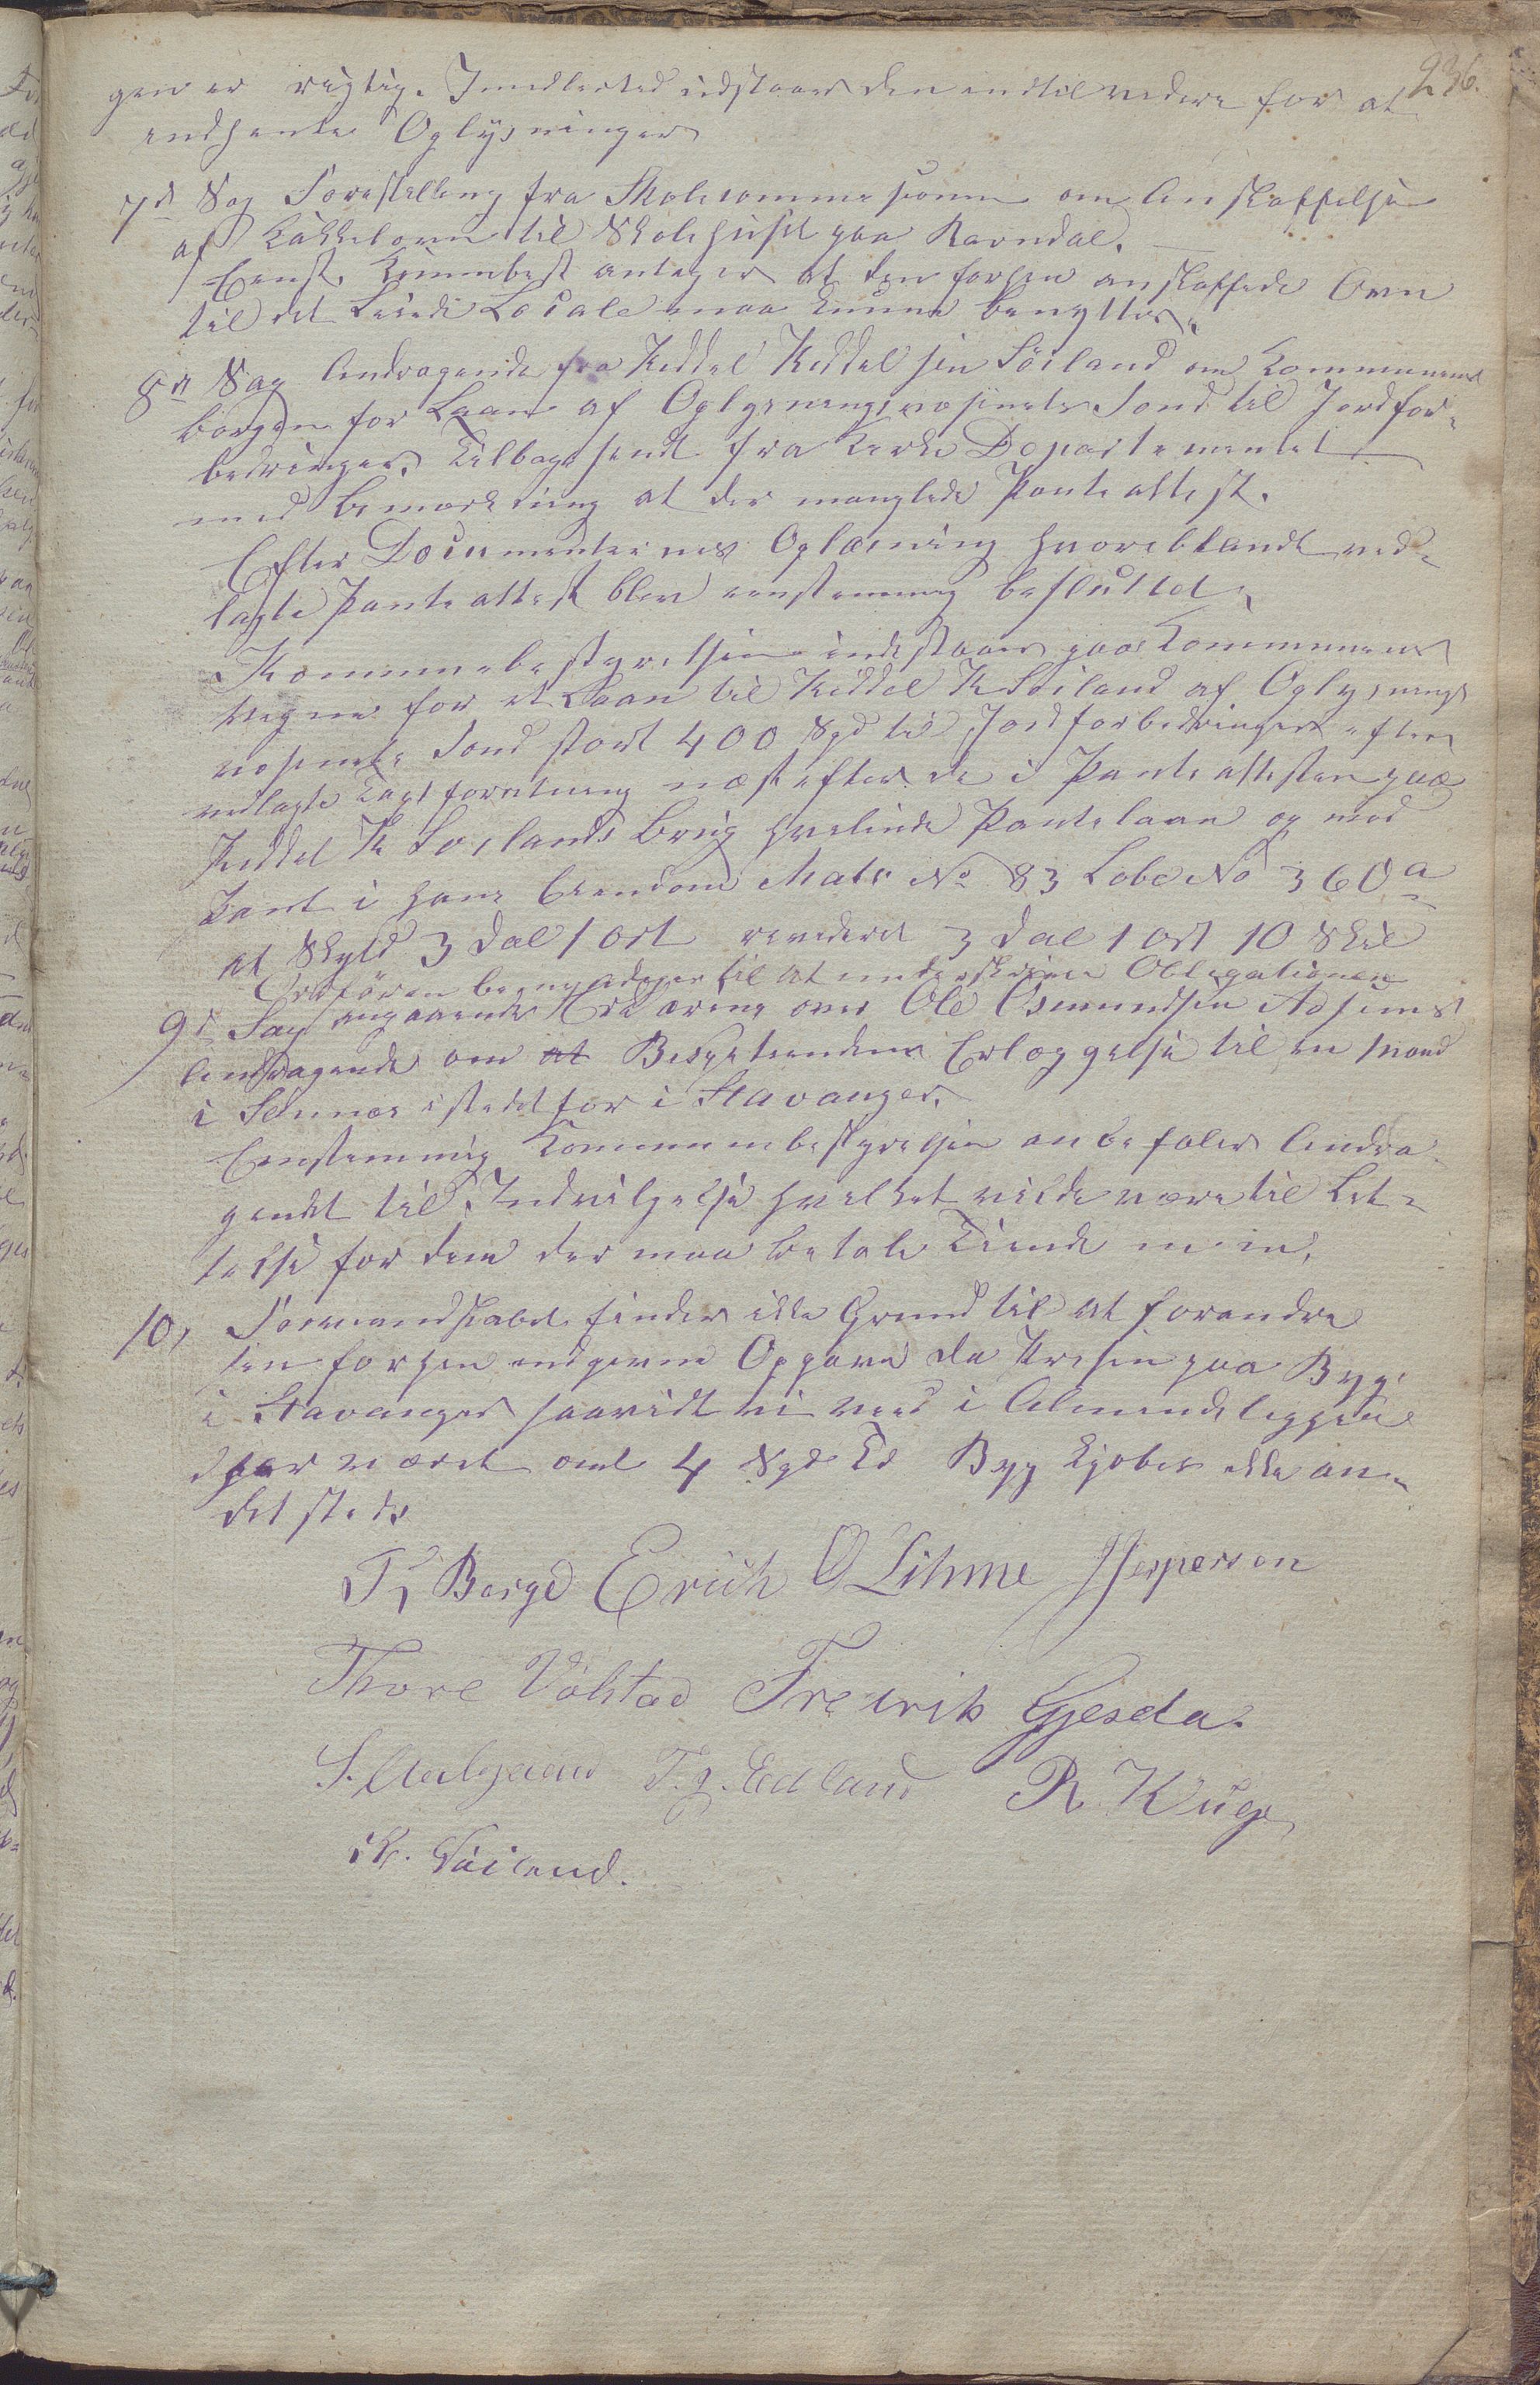 236.
gen er rigtig. Imidlertid udstaaer den indtil videre for at
indhente Oplysninger
7d Sag Forestilling fra Skolecommissionen om Anskaffelsen
af Kakkelovn til Skolehuset paa Ravndal.
Eenst. Kommbest antager at den forhen anskaffede Ovn
til det leiede Locale maa kunne benyttes.
8d Sag Andragende fra Keddel Keddelsen Söiland om Kommunens
borgen for Laan af Oplysningsvæsenets Fond til Jordfor-
bedringer, tilbagesendt fra Kirke Departementet
med Bemærkning at der manglede Panteattest.
Efter Documenternes Oplæsning hvoriblandt ved-
lagte Panteattest blev eenstemmig besluttet,
Kommunebestyrelsen indestaaer paa Kommunens
vegne for et Laan til Keddel K Söiland af Oplysnings
væsenets Fond stort 400 Spd til Jordforbedringer efter
vedlagte Taxtforretning næst efter de i Panteattesten paa
Keddel K Soilands Brug hvilende Pantelaan og med
Pant i hans Eiendom Matr No 83 Lobe No 360a
af Skyld 3 Dal 1 ort revideret 3 Dal 1 ort 10 Skil
Ordföreren bemyndiges til at underskrive Obligationen
9d Sag angaaende Erklæring over Ole Osmundsen
Andragende om at Bisptiendens Erlæggelse til en Mand
i istedetfor i Stavanger.
Eenstemmig Kommunebestyrelsen anbefaler Andra-
gendet til Indvilgelse hvilket vilde være til Let-
telse for dem der maa betale Tiende m.m.
10, Formandskabet finder ikke Grund til at forandre
den forhen indgivne Opgave da Prisen paa Byg
i Stavanger saavidt vi veed i Almindelighed
har været omt 4 Spd Td Byg kjøbes ikke an-
detsteds
T, Berge Erich O Lihme J Jesperson
Thore Völstad Fredrik Gjesda.
S. Aalgaard T. g. Edland R Kluge
K. Söiland.